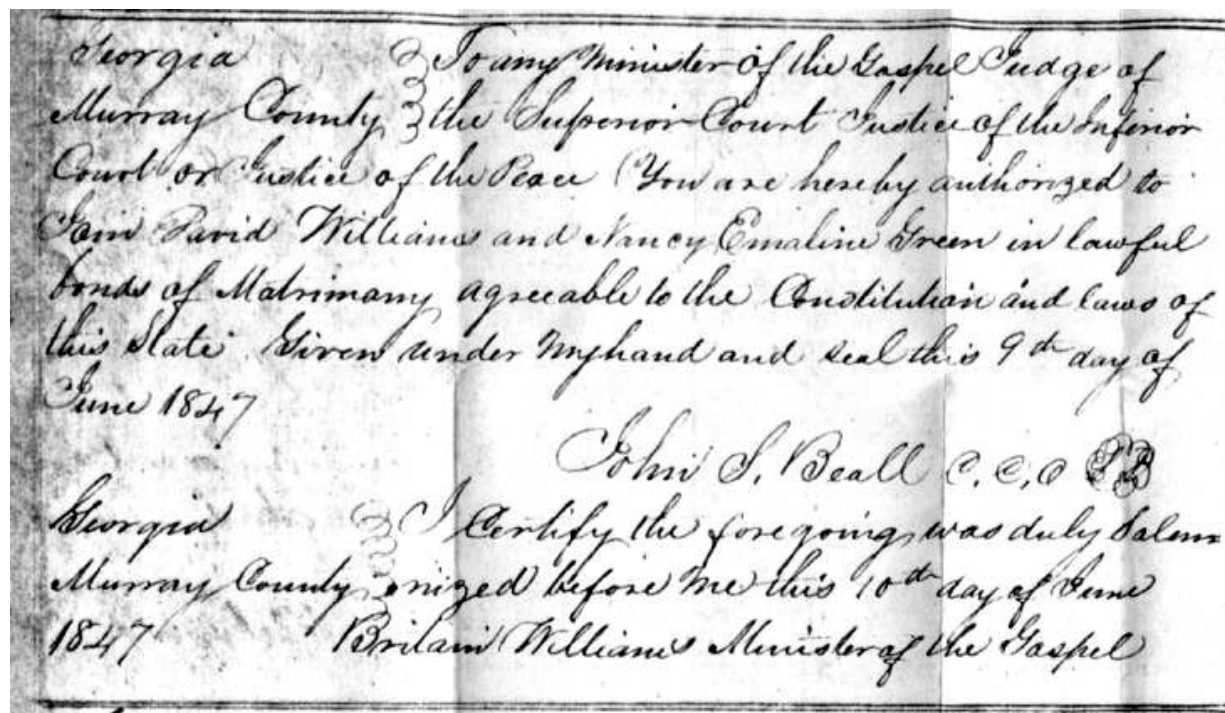 Georgia To any Minister of the Gospel Judge of
Murray County the Superior Court Justice of the Inferior
Court or Justice of the Peace You are hereby authorized to
Join David Williams and Nancy Emaline Green in lawful
bonds of Matrimony agreeable to the Constitution and laws of
this State Given under my hand and seal this 9th day of
June 1847
John S. Beall C.C.O
Georgia I Certify the foregoing was duly Solem
Murray County onized before me this 10th day of June
1847 Britain Williams Minister of the Gospel